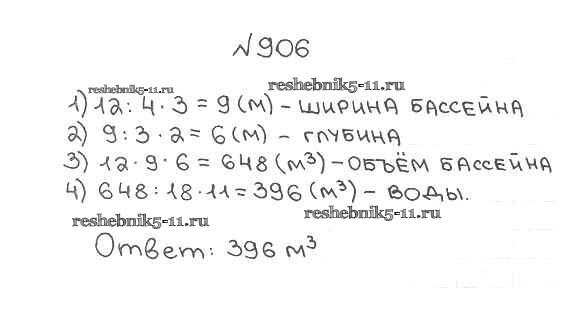 №906
reshebnik5-11.ru reshebnik5-11.ru
1) 12 : 4 · 3 = 9 (м) – ШИРИНА БАССЕЙНА
2) 9 : 3 · 2 = 6 (м) – ГЛУБИНА
3) 12 · 9 · 6 = 648 (м³) – ОБЪЁМ БАССЕЙНА
4) 648 : 18 · 11 = 396 (м³) – ВОДЫ.
reshebnik5-11.ru reshebnik5-11.ru
Ответ: 396 м³